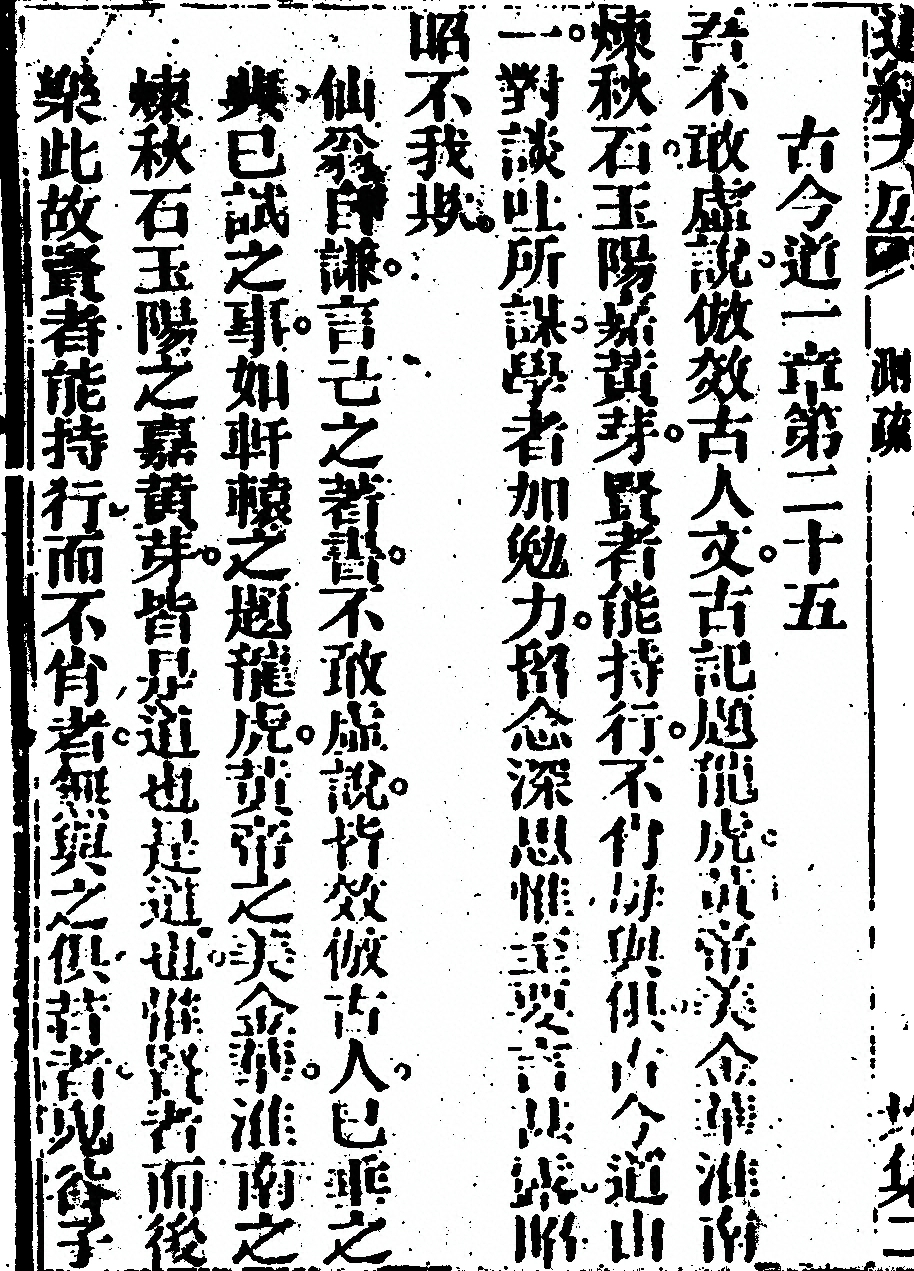 測疏
古今道一章第二十五
吾不敢虛說倣效古人文古記題龍虎黃帝美金華淮南
煉秋石玉陽嘉黃芽賢者能持行不肖毋與俱古今道由
一對談吐所謀學者加勉力留念深思惟至要言甚露昭
昭不我欺
仙翁自謙言己之著書不敢虛說皆效倣古人已垂之
典已試之事如軒轅之題龍虎黃帝之美金華淮南之
煉秋石玉陽之嘉黃芽皆是道也是道也惟賢者而後
樂此故賢者能持行而不肖者無與之俱昔者鬼谷子